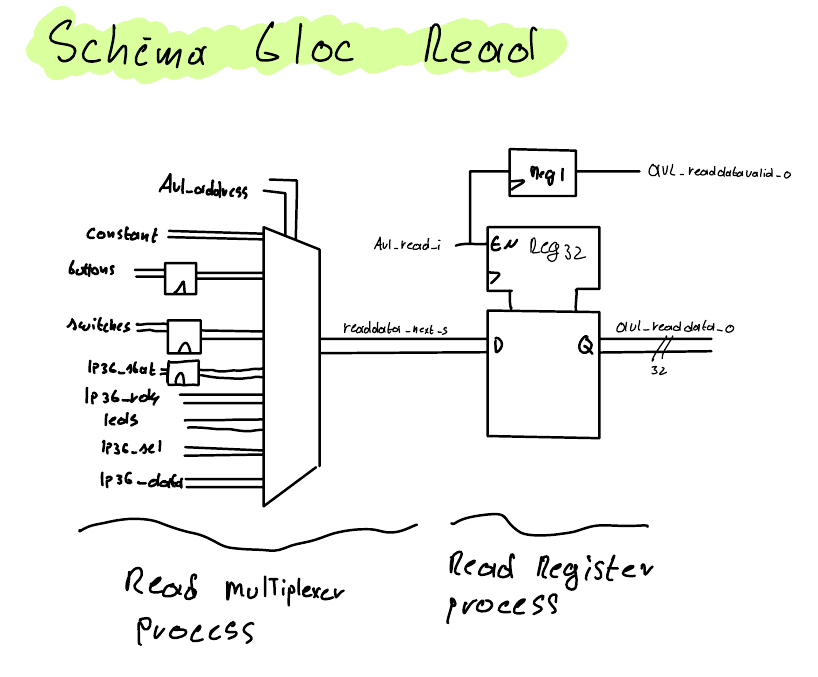 Schéma Bloc Read
Avl_address
constant
buttons
switches
lp36_stat
lp36_rdy
leds
lp36_sel
lp36_data
readdata_next_s
Reg1
avl_readdatavalid_o
Avl_read_i
EN Reg32
D
Q
avl_readdata_o
32
Read Multiplexer
process
Read Register
process